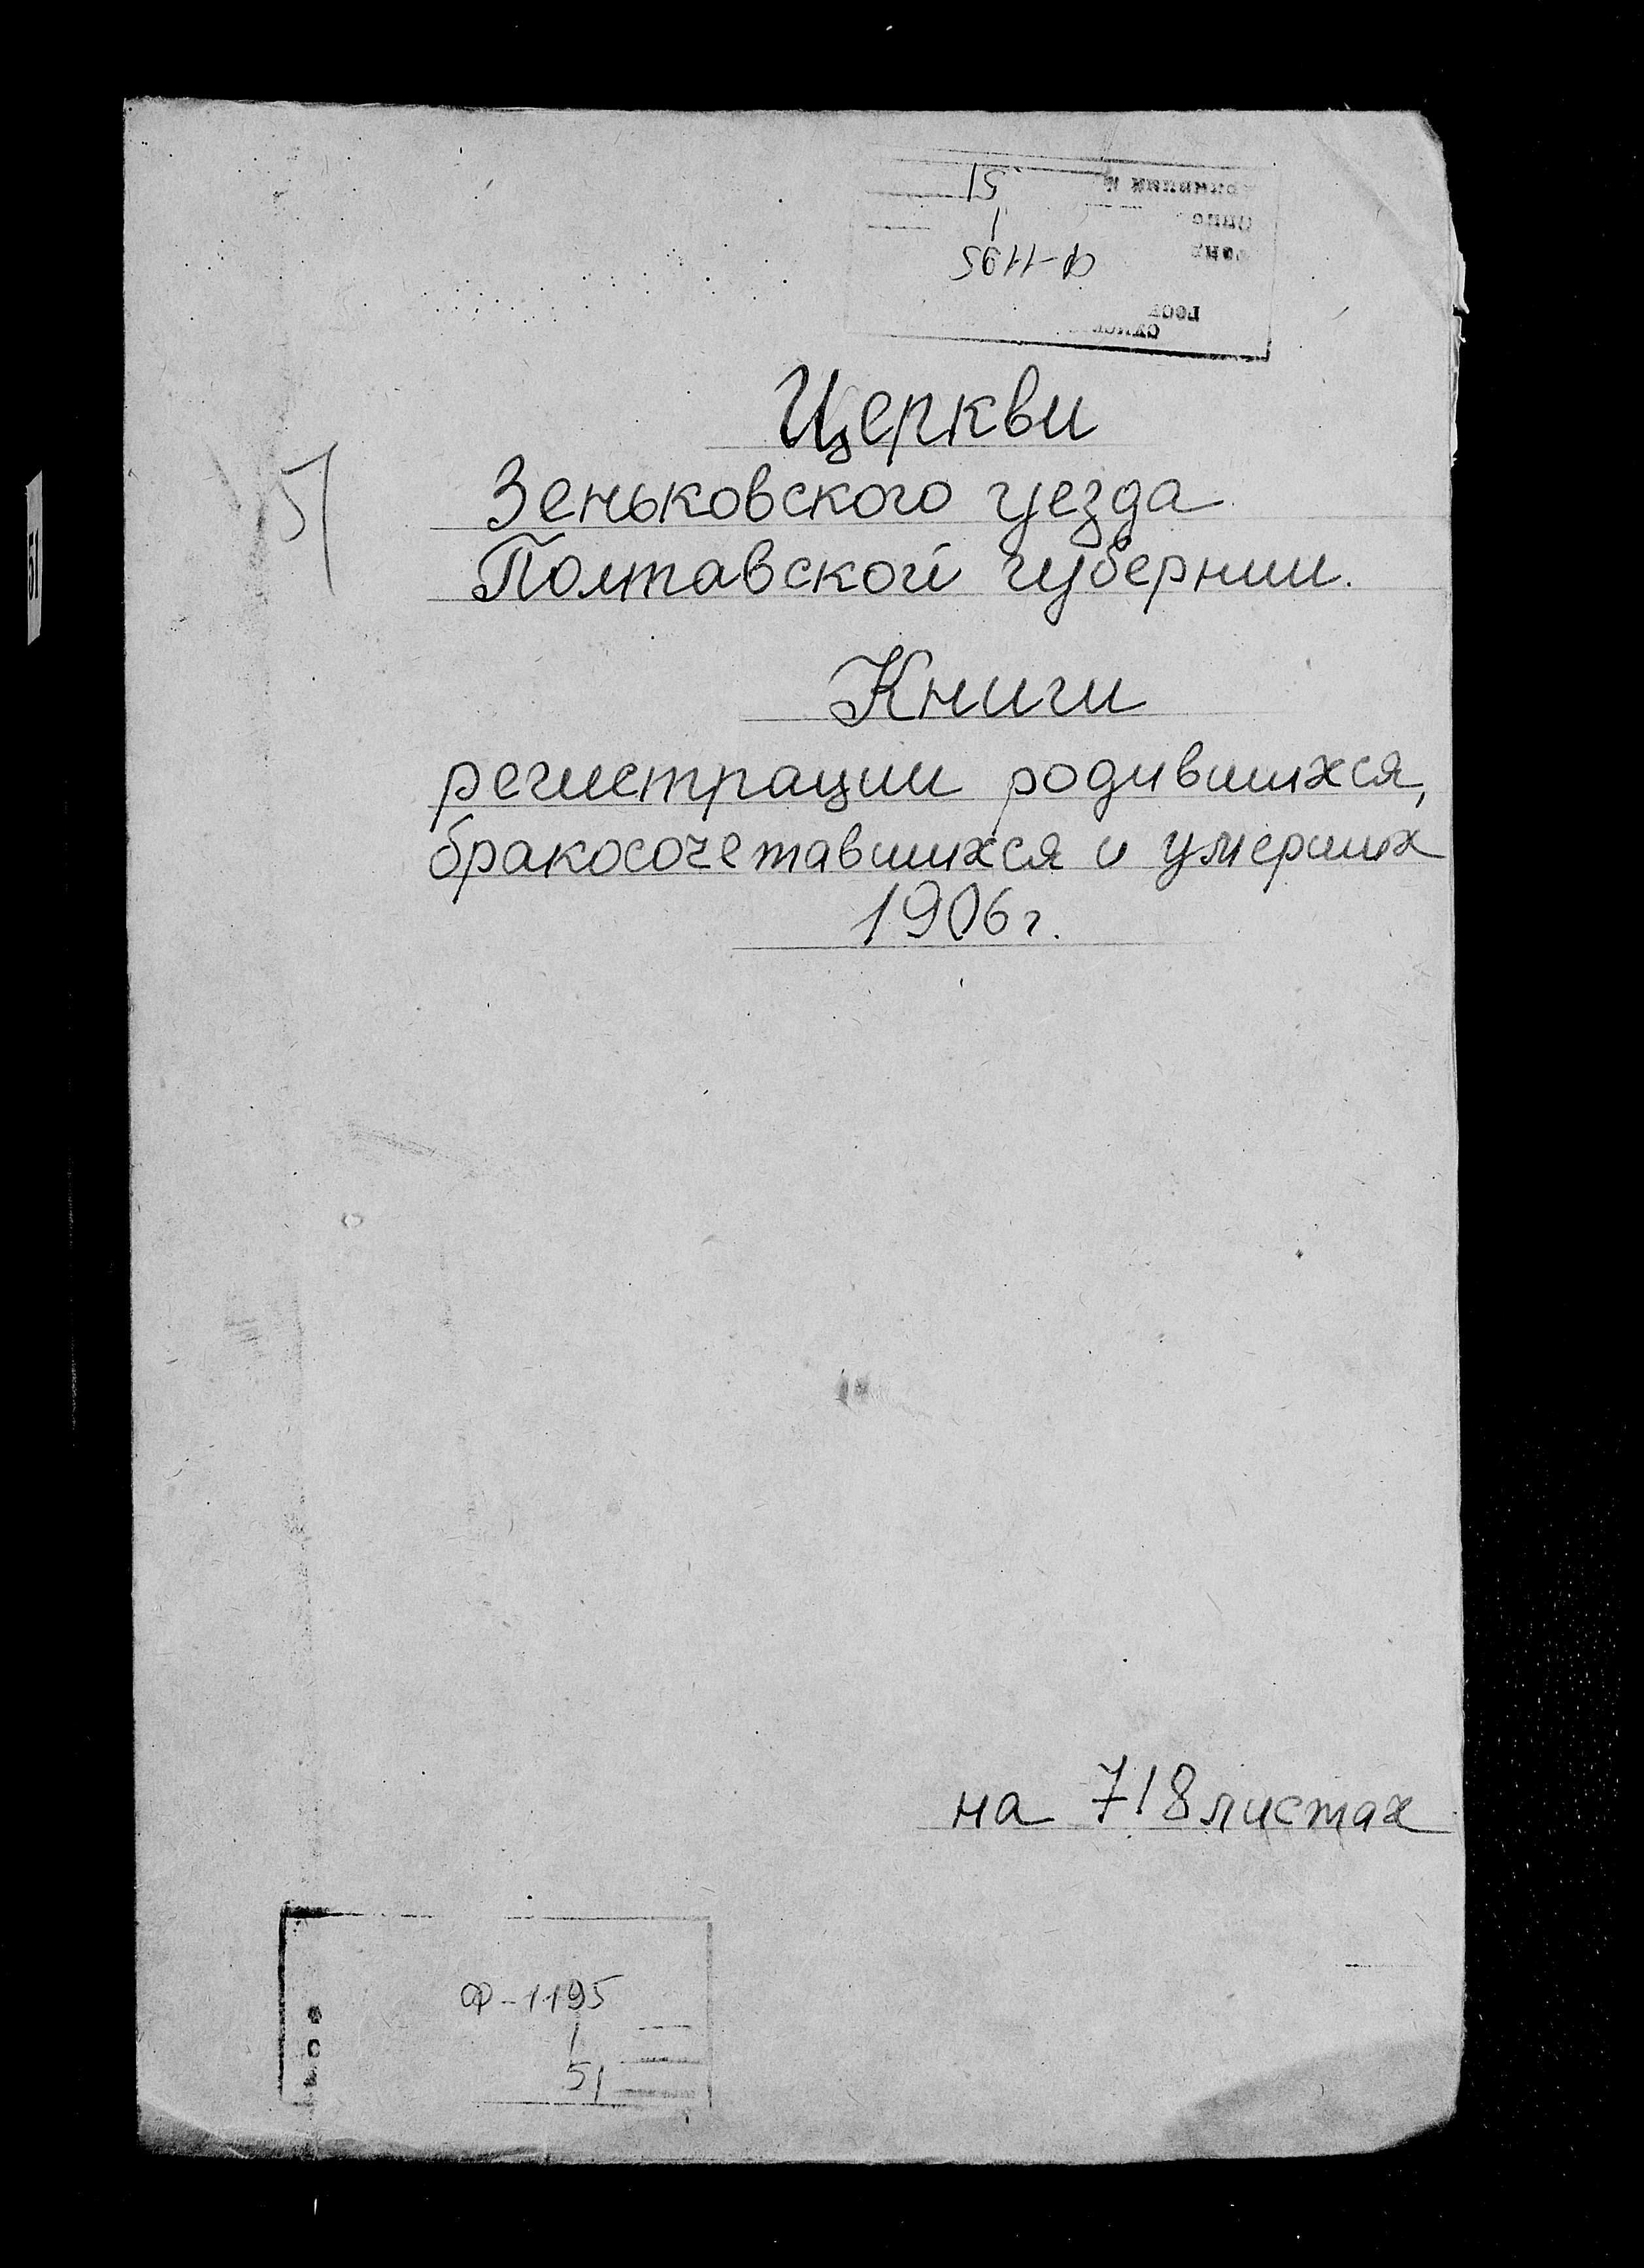 51
1
Ф-1195
51
51
Церкви
Зеньковского уезда
Полтавской губернии.
Книги
регистрации родившихся,
бракосочетавшихся и умерших
1906 г.
на 718 листах
Ф-1195
1
51